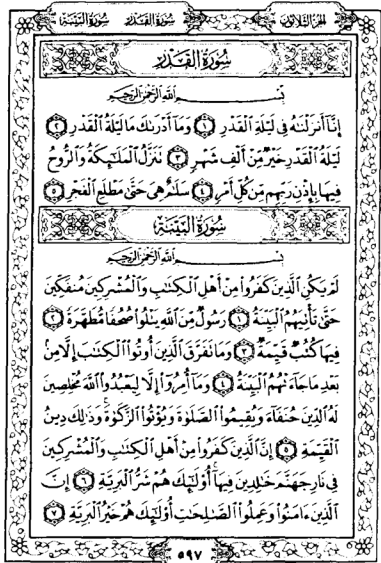 سُورَةُ البَيِّنَةِ سُورَةُ القَدْرِ الجُزْءُ الثَّلَاثُونَ
سُورَةُ القَدْرِ
بِسْمِ ٱللَّهِ ٱلرَّحْمَٰنِ ٱلرَّحِيمِ
إِنَّآ أَنزَلْنَٰهُ فِى لَيْلَةِ ٱلْقَدْرِ ١ وَمَآ أَدْرَىٰكَ مَا لَيْلَةُ ٱلْقَدْرِ ٢
لَيْلَةُ ٱلْقَدْرِ خَيْرٌ مِّنْ أَلْفِ شَهْرٍ ٣ تَنَزَّلُ ٱلْمَلَٰٓئِكَةُ وَٱلرُّوحُ
فِيهَا بِإِذْنِ رَبِّهِم مِّن كُلِّ أَمْرٍ ٤ سَلَٰمٌ هِىَ حَتَّىٰ مَطْلَعِ ٱلْفَجْرِ ٥
سُورَةُ البَيِّنَةِ
بِسْمِ ٱللَّهِ ٱلرَّحْمَٰنِ ٱلرَّحِيمِ
لَمْ يَكُنِ ٱلَّذِينَ كَفَرُوا۟ مِنْ أَهْلِ ٱلْكِتَٰبِ وَٱلْمُشْرِكِينَ مُنفَكِّينَ
حَتَّىٰ تَأْتِيَهُمُ ٱلْبَيِّنَةُ ١ رَسُولٌ مِّنَ ٱللَّهِ يَتْلُوا۟ صُحُفًا مُّطَهَّرَةً ٢
فِيهَا كُتُبٌ قَيِّمَةٌ ٣ وَمَا تَفَرَّقَ ٱلَّذِينَ أُوتُوا۟ ٱلْكِتَٰبَ إِلَّا مِنۢ
بَعْدِ مَا جَآءَتْهُمُ ٱلْبَيِّنَةُ ٤ وَمَآ أُمِرُوٓا۟ إِلَّا لِيَعْبُدُوا۟ ٱللَّهَ مُخْلِصِينَ
لَهُ ٱلدِّينَ حُنَفَآءَ وَيُقِيمُوا۟ ٱلصَّلَوٰةَ وَيُؤْتُوا۟ ٱلزَّكَوٰةَ وَذَٰلِكَ دِينُ
ٱلْقَيِّمَةِ ٥ إِنَّ ٱلَّذِينَ كَفَرُوا۟ مِنْ أَهْلِ ٱلْكِتَٰبِ وَٱلْمُشْرِكِينَ
فِى نَارِ جَهَنَّمَ خَٰلِدِينَ فِيهَآ أُو۟لَٰٓئِكَ هُمْ شَرُّ ٱلْبَرِيَّةِ ٦ إِنَّ
ٱلَّذِينَ ءَامَنُوا۟ وَعَمِلُوا۟ ٱلصَّٰلِحَٰتِ أُو۟لَٰٓئِكَ هُمْ خَيْرُ ٱلْبَرِيَّةِ ٧
٥٩٧